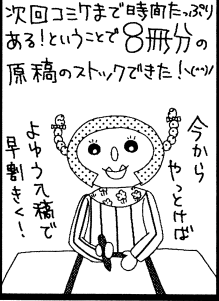 次回コミケまで時間たっぷり
ある!ということで8冊分の
原稿のストックできた!＼(^^)/
今から
やっとけば
よゆう入稿で
早割きく!